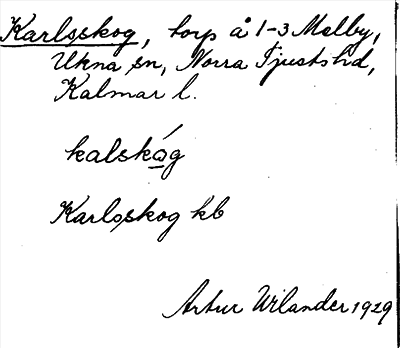 Karlsskog, torp å 1-3 Malby,
Ukna sn, Norra Tjusts hd,
Kalmar l.
kalskóg
Karlsskog kb
Artur Wilander 1929